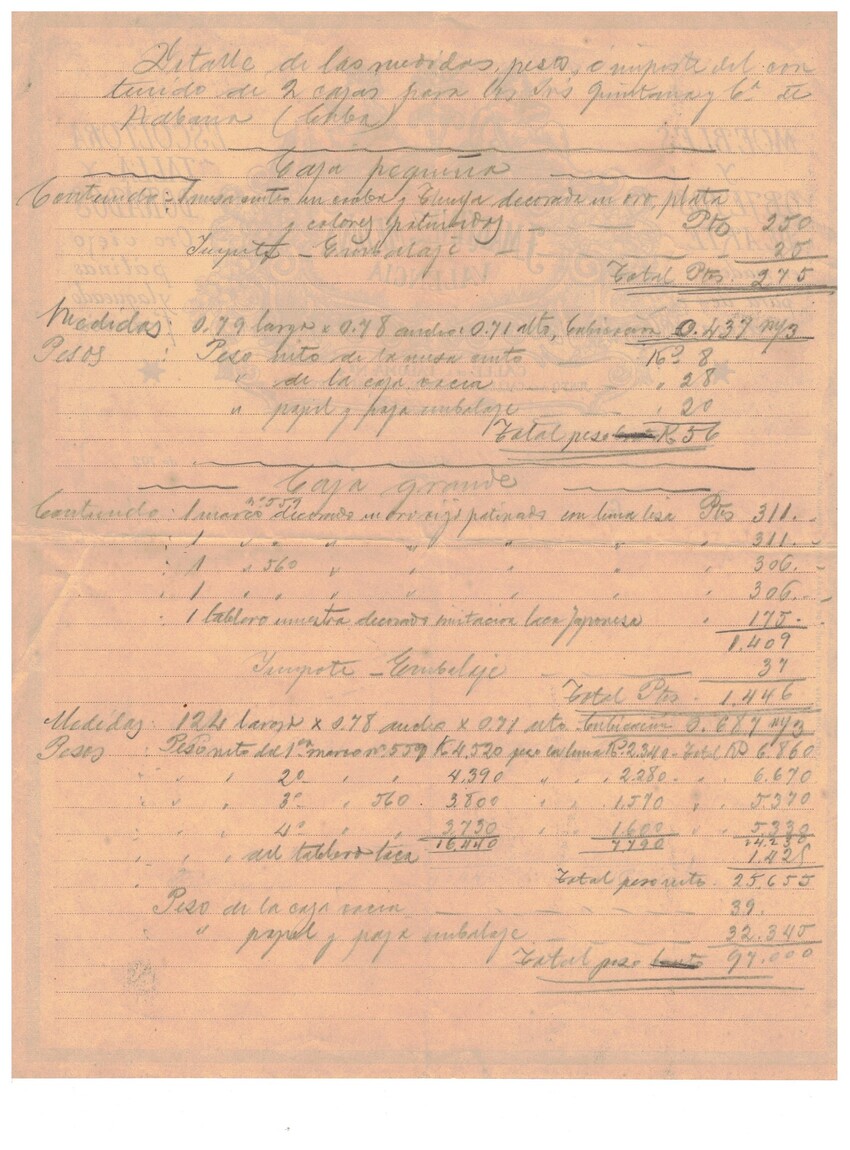 Detalle de las medidas, peso, é importe del con
tenido de 2 cajas para los Srs Quintana y Cª de
Habana (Cuba)
Caja pequeña
Contenido: 1 mesa centro en caoba y decorada en oro, plata
y colores patinados Pts 250
Importe - Embalaje 25
Total Pts 275
Medidas: 0.79 largo x 0.78 ancho x 0.71 alto, Cubicación 0.437 m/3
Pesos Peso neto de la mesa centro Kº 8
" de la caja vacia " 28
" papel y paja embalaje " 20
Total peso K 56
Caja grande
Contenido: 1 marco nº 559 decorado en oro viejo patinado con luna lisa Pts 311.
1 " " " " " " 311.
1 " 560 " " " " 306.
1 " " " " " " 306.
1 tablero muestra decorado imitacion laca Japonesa " 175.
1.409
Importe - Embalaje 37
Total Pts 1.446
Medidas 124 largo x 0.78 ancho x 0.71 alto Cubicación 0.687 m/3
Pesos Peso neto del 1er marco nº 559 K 4.520 peso la luna K. 2.340 - Total K 6.860
" " 2º " " 4.390 " " 2.280 " " 6.670
" " 3º " 560 . 3.800 " " 1.570 " " 5.370
" " 4º " " 3.730 " " 1.600 " " 5.330
16.440 7.790 24.230
" del tablero laca 1.425
Total peso neto 25.655
Peso de la caja vacia 39.
" papel y paja embalaje 32.345
Total peso 97.000